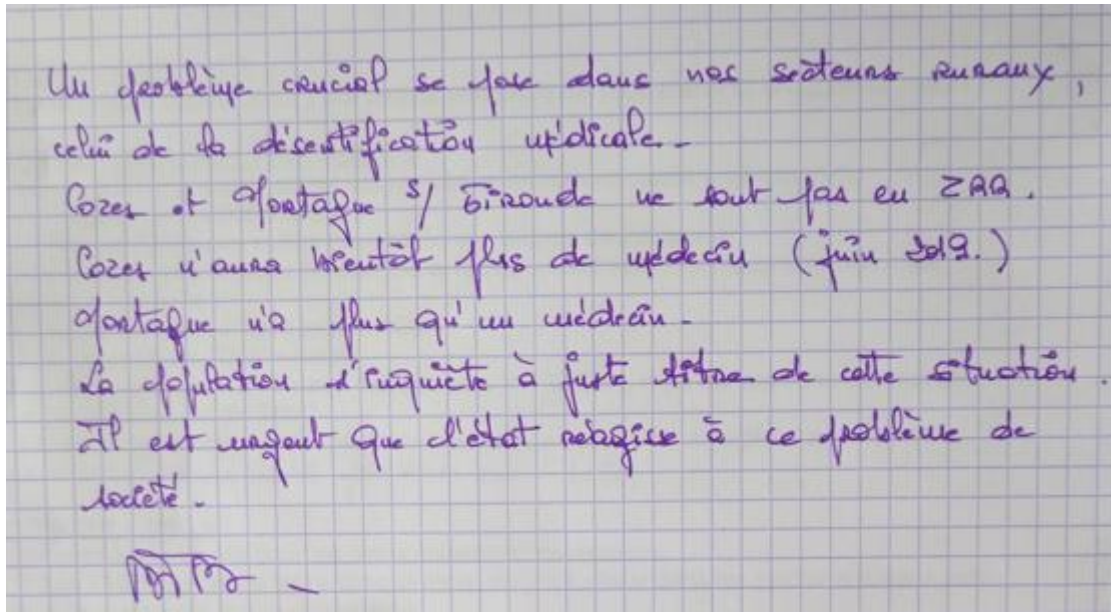 Un problème crucial se pose dans nos secteurs ruraux,
celui de la désertification médicale.
Cozes et Mortagne s/ Gironde ne sont pas en ZRR.
Cozes n'aura bientôt plus de médecin (juin 2019.)
Mortagne n'a plus qu'un médecin.
La population s'inquiète à juste titre de cette situation.
Il est urgent que l'état réagisse à ce problème de
société.